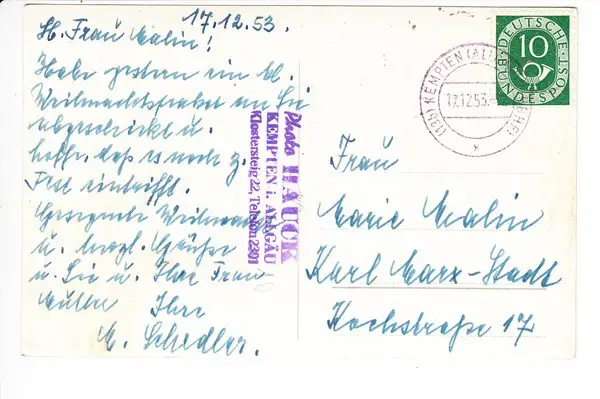 17.12.53.
Lb. Frau Malin!
Habe gestern ein kl.
Weihnachtspaket an Sie
abgeschickt u.
hoffe, daß es noch z.
Fest eintrifft.
Gesegnete Weihnacht
u. herzl. Grüße
u. Sie u. Ihre Frau
Mutter Ihre
M. Schedler.
Photo HAUCK
KEMPTEN i. ALLGÄU
Klostersteig 22, Telefon 2301
DEUTSCHE BUNDESPOST
10
(13b) KEMPTEN (ALL
17.12.53.
Frau
Marie Malin
Karl Marx-Stadt
Kochstraße 17